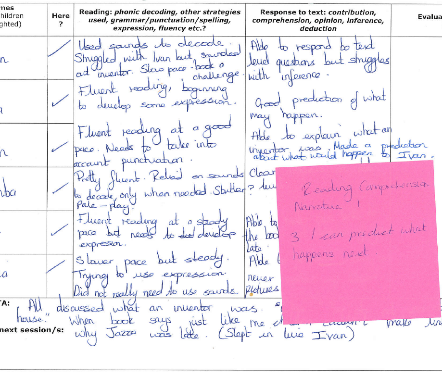 mes
children
ghted)
Here
?
Reading: phonic decoding, other strategies
used, grammar/punctuation/spelling,
expression, fluency etc.?
Response to text: contribution,
comprehension, opinion, inference,
deduction
Evalua
n
Used sounds to decode.
Struggled with Ivan but sounded
out inventor. Slow pace - book a
challenge
Able to respond to text
level questions but struggles
with inference.
a
Fluent reading, beginning
to develop some expression.
Good prediction of what
may happen.
n
Fluent reading at a good
pace. Needs to take into
account punctuation.
Able to explain what an
inventor was. Made a prediction
about what would happen to Ivan.
mba
Pretty fluent. Relied on sounds
to decode, only when needed
Clear
Fluent reading at a steady
pace but needs to develop
expression.
Able to
the boo
late.
a
Slower pace but steady.
Trying to use expression
Did not really need to use sounds.
Able
never
pictures
Reading Comprehension
Narrative 1
3 I can predict what
happens next
TA:
All discussed what an inventor was.
house."
When book says just like me
next session/s:
why was late. (Slept in like Ivan)